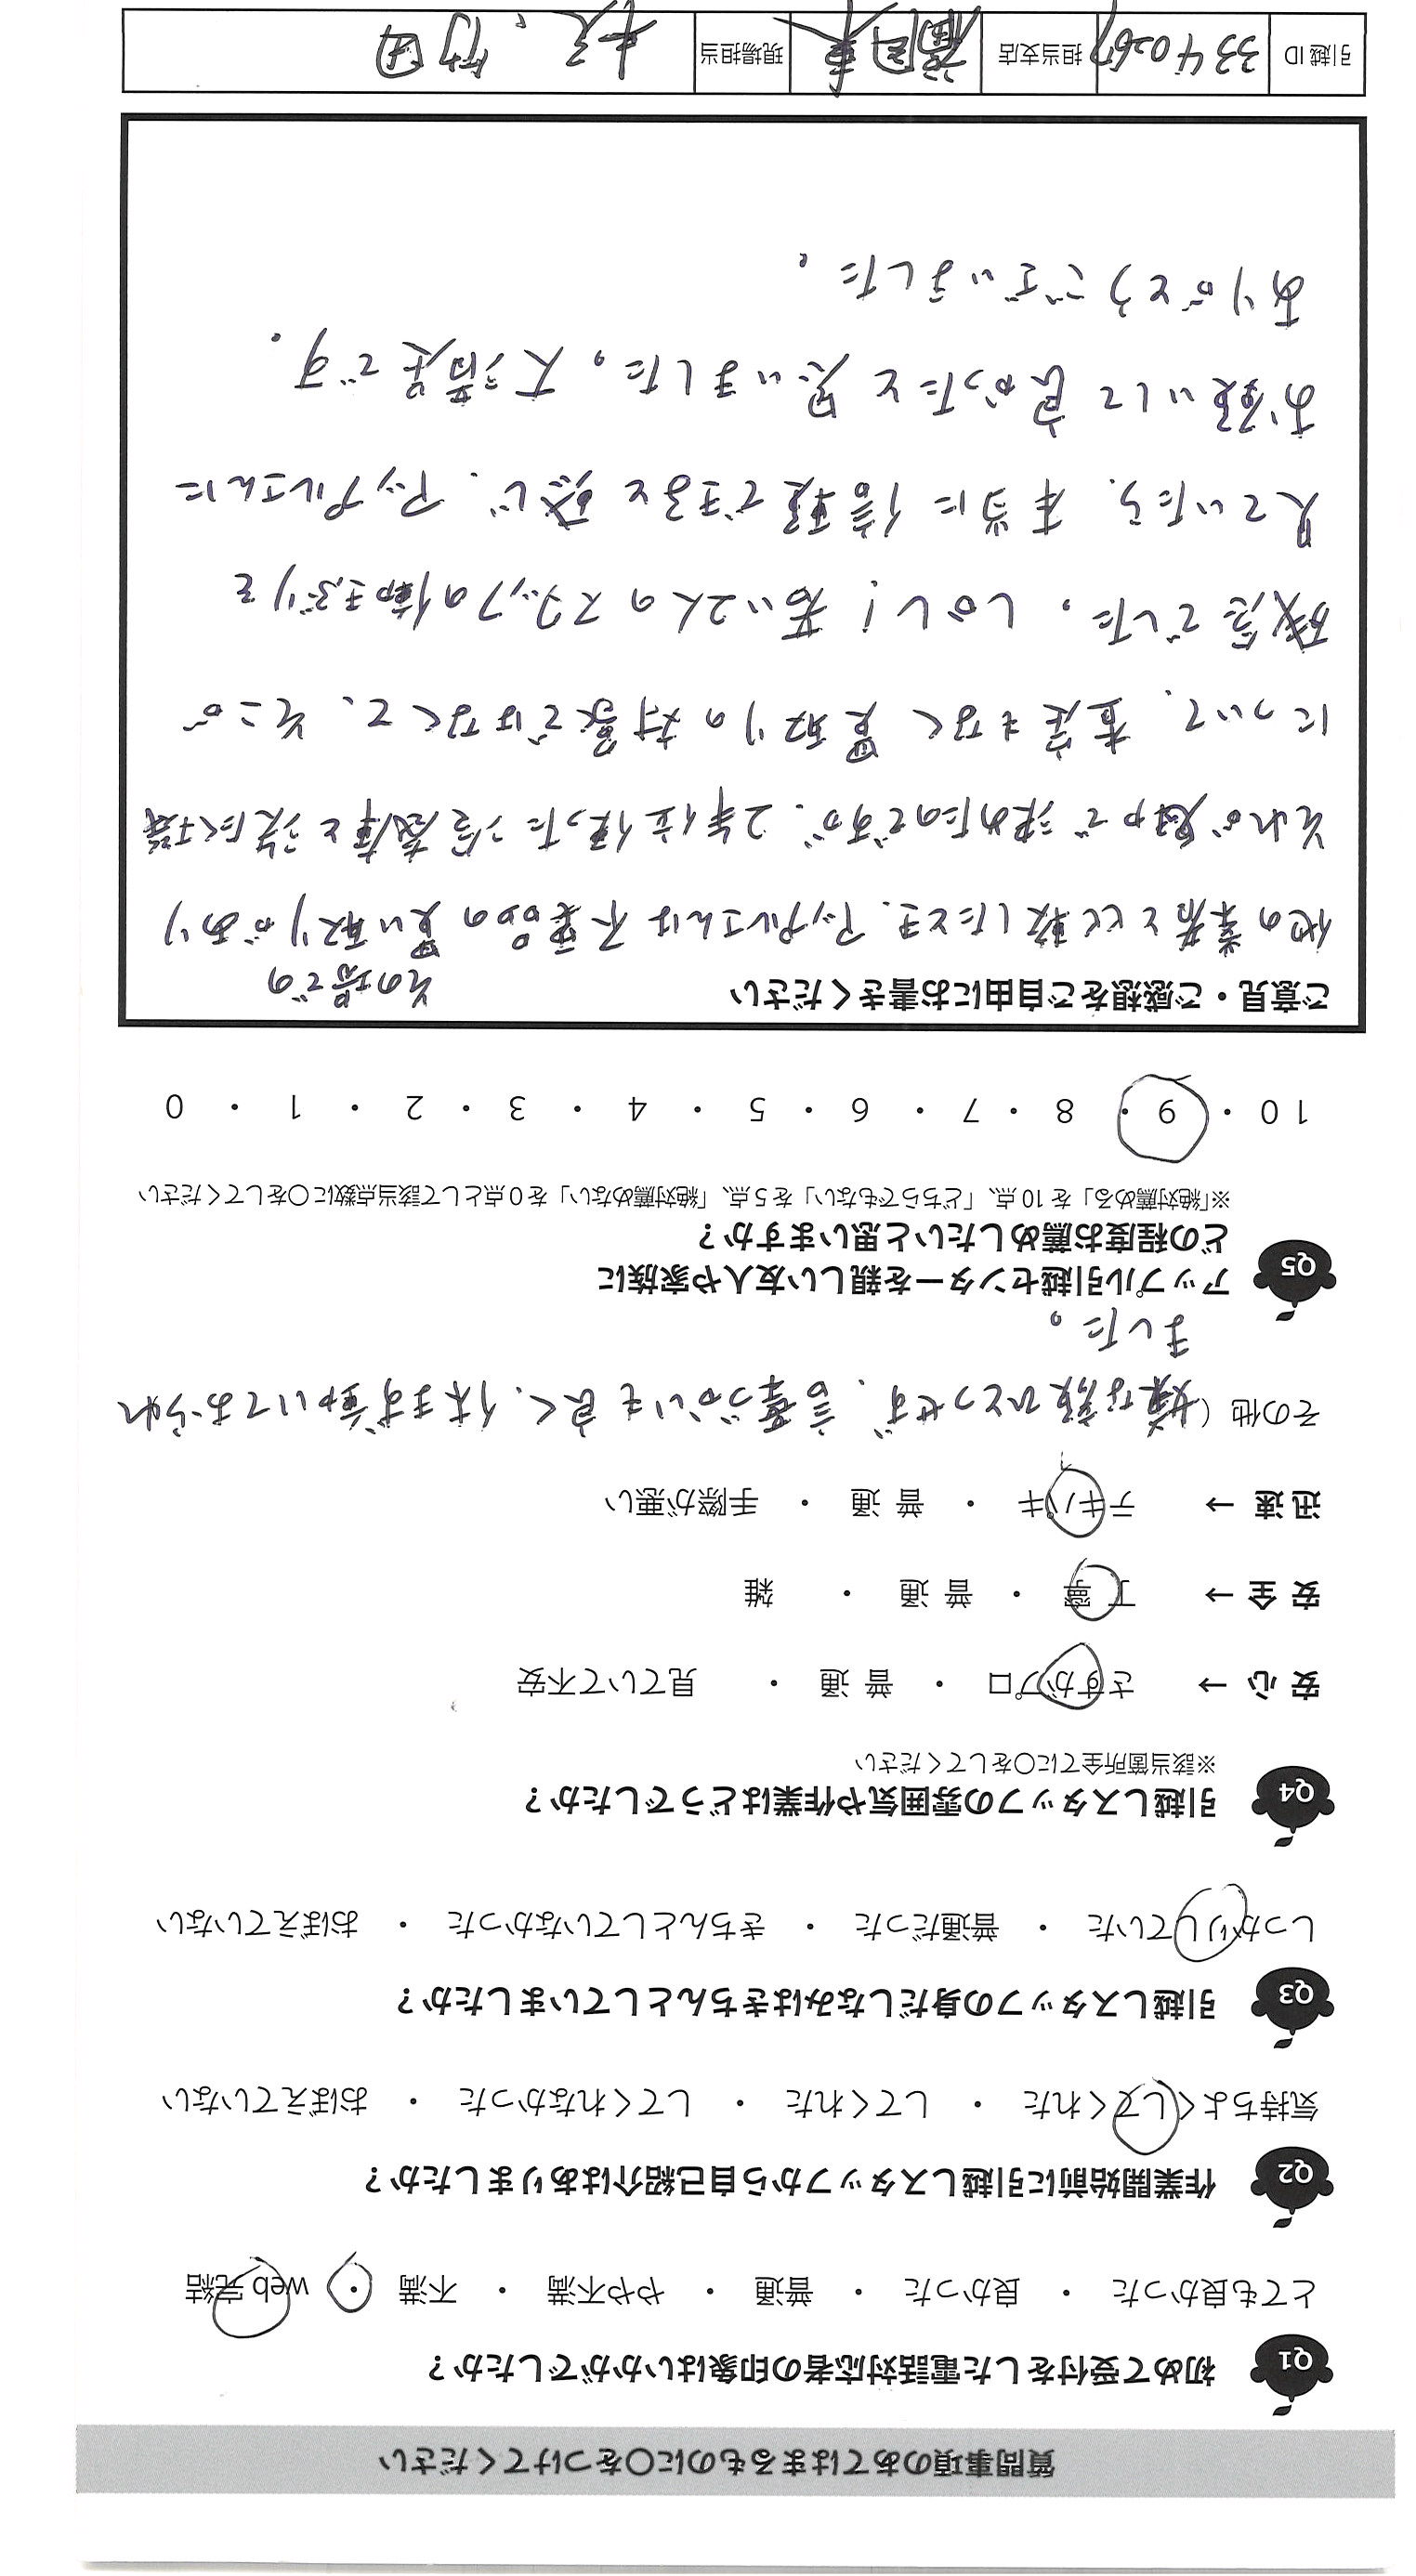 質問事項のあてはまるものに○をつけてください
Q1 初めて受付をした電話対応者の印象はいかがでしたか？
とても良かった ・ 良かった ・ 普通 ・ やや不満 ・ 不満 ・ web 完結
Q2 作業開始前に引越しスタッフから自己紹介はありましたか？
気持ちよくしてくれた ・ してくれた ・ してくれなかった ・ おぼえていない
Q3 引越しスタッフの身だしなみはきちんとしていましたか？
しっかりしていた ・ 普通だった ・ きちんとしていなかった ・ おぼえていない
Q4 引越しスタッフの雰囲気や作業はどうでしたか？
※該当箇所全てに○をしてください
安 心 → さすがプロ ・ 普 通 ・ 見ていて不安
安 全 → 丁 寧 ・ 普 通 ・ 雑
迅 速 → テキパキ ・ 普 通 ・ 手際が悪い
その他（嫌な顔ひとつせず、言葉づかいも良く、休まず動いておられ
ました。
Q5 アップル引越センターを親しい友人や家族に
どの程度お薦めしたいと思いますか？
※「絶対薦める」を 10 点、「どちらでもない」を 5 点、「絶対薦めない」を 0 点として該当点数に○をしてください
10 ・ 9 ・ 8 ・ 7 ・ 6 ・ 5 ・ 4 ・ 3 ・ 2 ・ 1 ・ 0
ご意見・ご感想をご自由にお書きください
その場での
他の業者と比較したとき、アップルさんは不要品の買い取りがあり
それが魅力で決めたのですが、2年位使った冷蔵庫と洗たく機
について、査定もなく買取りの対象ではなくて、そこが
残念でした。しかし！若い2人のスタッフの働きぶりを
見ていたら、本当に信頼できると感じ、アップルさんに
お願いして良かったと思いました。大満足です。
ありがとうございました。
引越 ID 3340267 担当支店 福岡東 現場担当 竹田